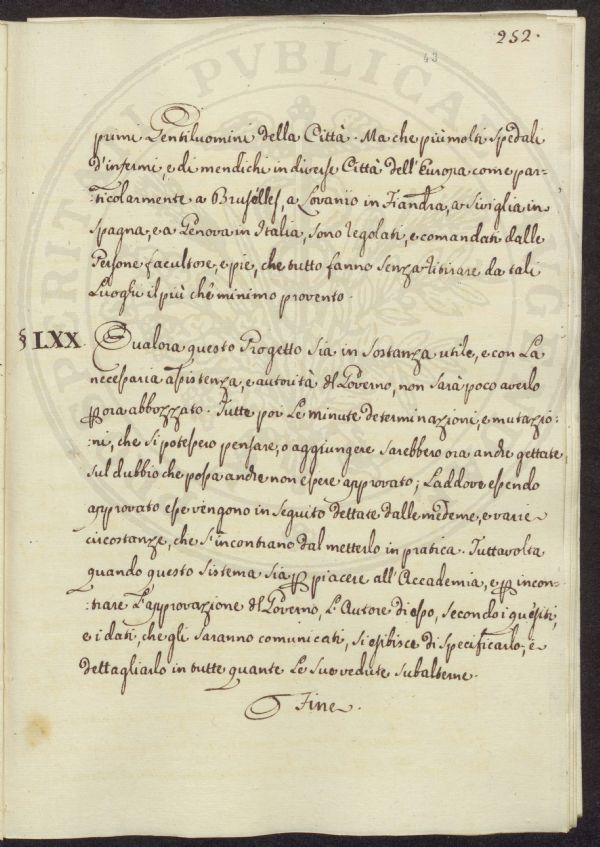 252.
43
primi Gentiluomini della Città. Ma che più molti spedali
d'infermi, e di mendichi in diverse Città dell'Europa come par=
=ticolarmente a Brusselles, a Lovanio in Fiandra, a Siviglia in
Spagna, e a Genova in Italia, sono regolati, e comandati dalle
Persone facultose, e pie, che tutto fanno senza ritirare da tali
Luoghi il più che minimo provento.
§ LXX. Qualora questo Progetto sia in sostanza utile, e con la
necessaria assistenza, e autorità del Governo, non sarà poco averlo
per ora abbozzato. Tutte poi le minute determinazioni, e mutazio=
=ni, che si potessero pensare, o aggiungere sarebbero ora anche gettate
sul dubbio che possa anche non essere approvato; Laddove essendo
approvato esse vengono in seguito dettate dalle medeme, e varie
circostanze, che s'incontrano dal metterlo in pratica. Tuttavolta
quando questo sistema sia per piacere all'Accademia, e per incon=
=trare l'approvazione del Governo, l'Autore di esso, secondo i quesiti,
e i dati, che gli saranno comunicati, si esibisce di specificarlo, e
dettagliarlo in tutte quante le sue vedute subalterne.
Fine.